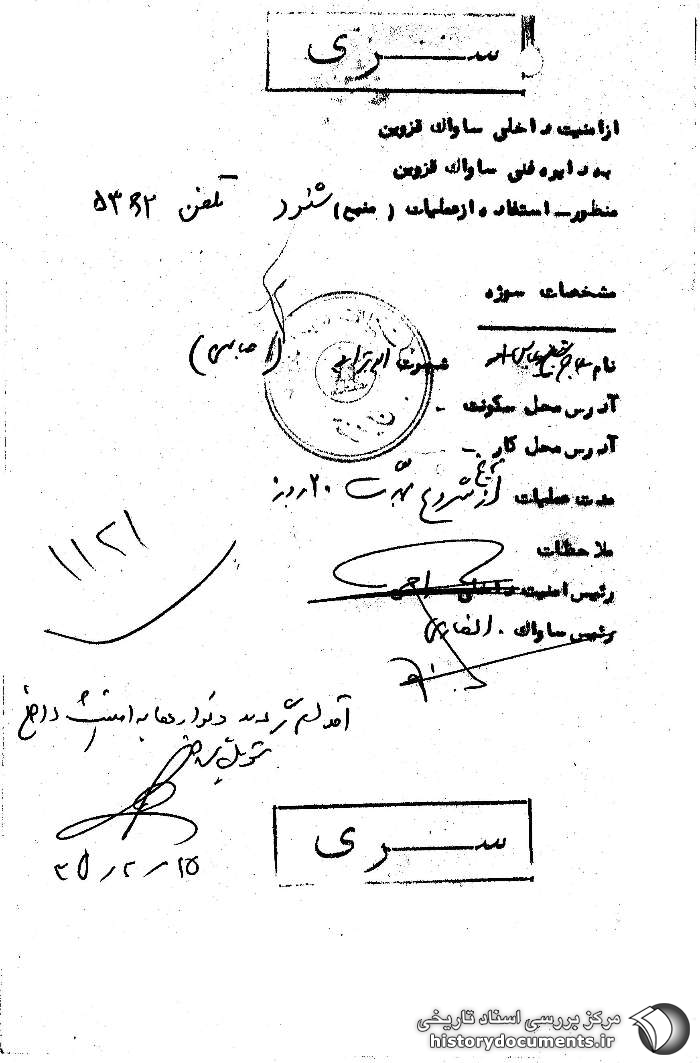 سری
از امنیت داخلی ساواک قزوین
به دایره فنی ساواک قزوین
منظور ـ استفاده از عملیات (منبع) شنود تلفن ۵۳۶۲
مشخصات سوژه
نام شهرت ابوترابی
آدرس محل سکونت ـ
آدرس محل کار ـ
مدت عملیات از شروع ۲۰ روز
ملاحظات
رئیس امنیت داخلی
رئیس ساواک . انصاری
۱۱۲۱
اقدام گردید و نوارها به امنیت داخلی
تحویل
۳۵/۲/۱۵
سری
مرکز بررسی اسناد تاریخی
historydocuments.ir